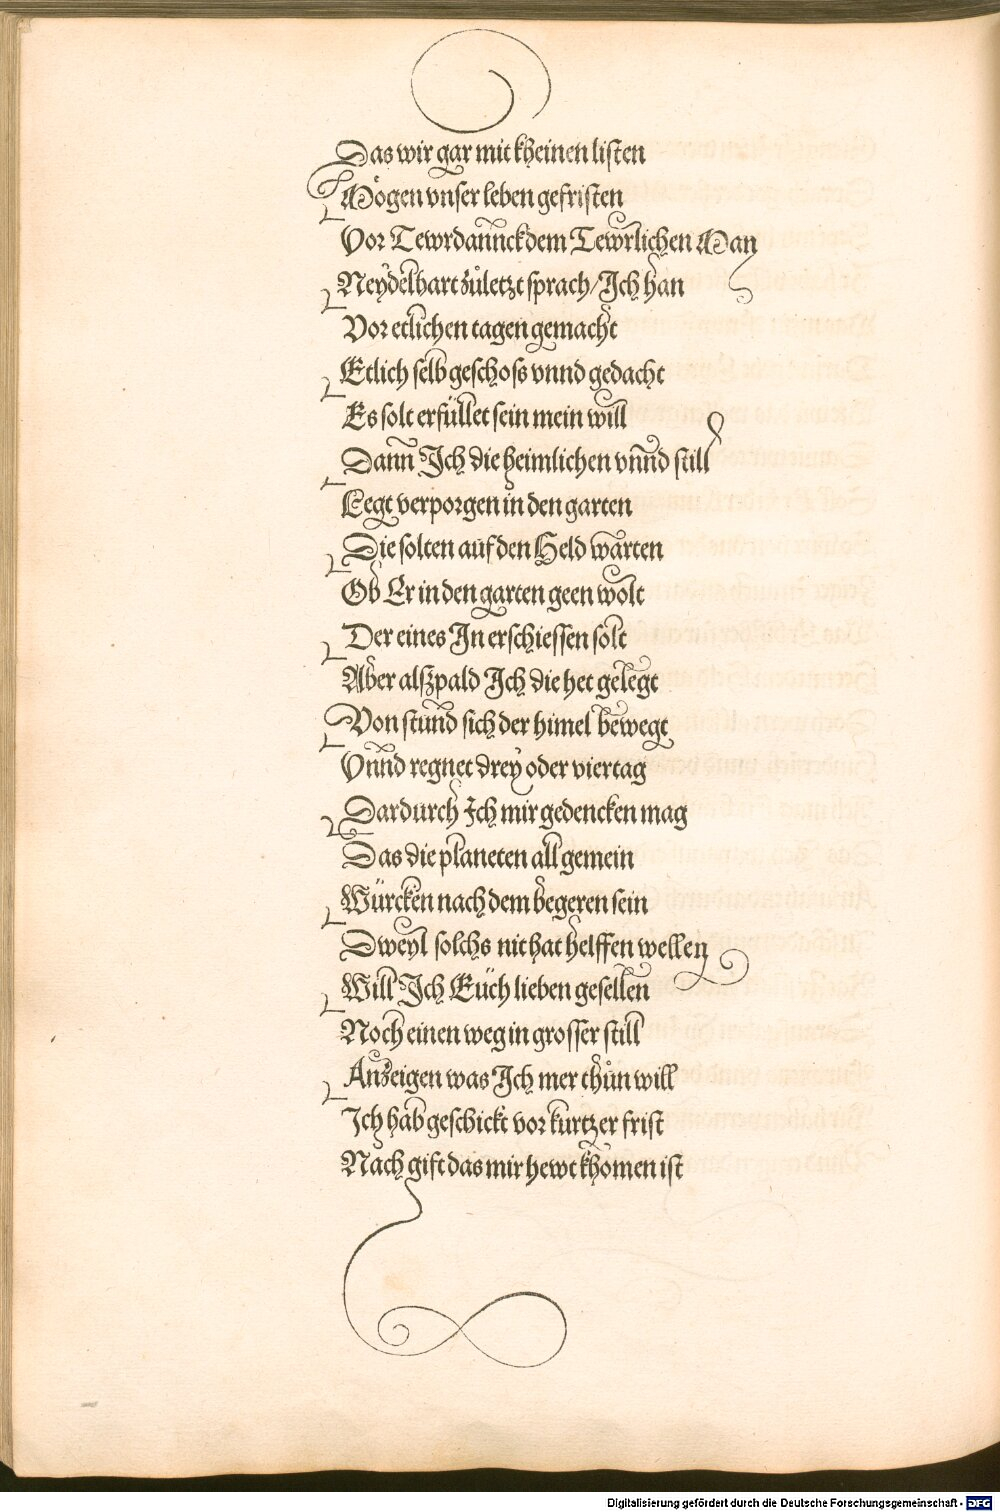 Das wir gar mit kheinen listen
Mögen vnser leben gefristen
Vor Tewrdannck dem Tewrlichen Man
Neydelhart zůletzt sprach/ Ich han
Vor etlichen tagen gemacht
Etlich selbgeschoss vnnd gedacht
Es solt erfüllet sein mein will
Dann Ich die heimlichen vnnd still
Legt verporgen in den garten
Die solten auf den Held warten
Ob Er in den garten geen wolt
Der eines In erschiessen solt
Aber alszpald Ich die het gelegt
Von stund sich der himel bewegt
Vnnd regnet drey oder vier tag
Dardurch Ich mir gedencken mag
Das die planeten all gemein
Würcken nach dem begeren sein
Dweyl solchs nit hat helffen wellen
Will Ich Euch lieben gesellen
Noch einen weg in grosser still
Anzeigen was Ich mer thůn will
Ich hab geschickt vor kurtzer frist
Nach gift das mir hewt khomen ist
Digitalisierung gefördert durch die Deutsche Forschungsgemeinschaft - DFG